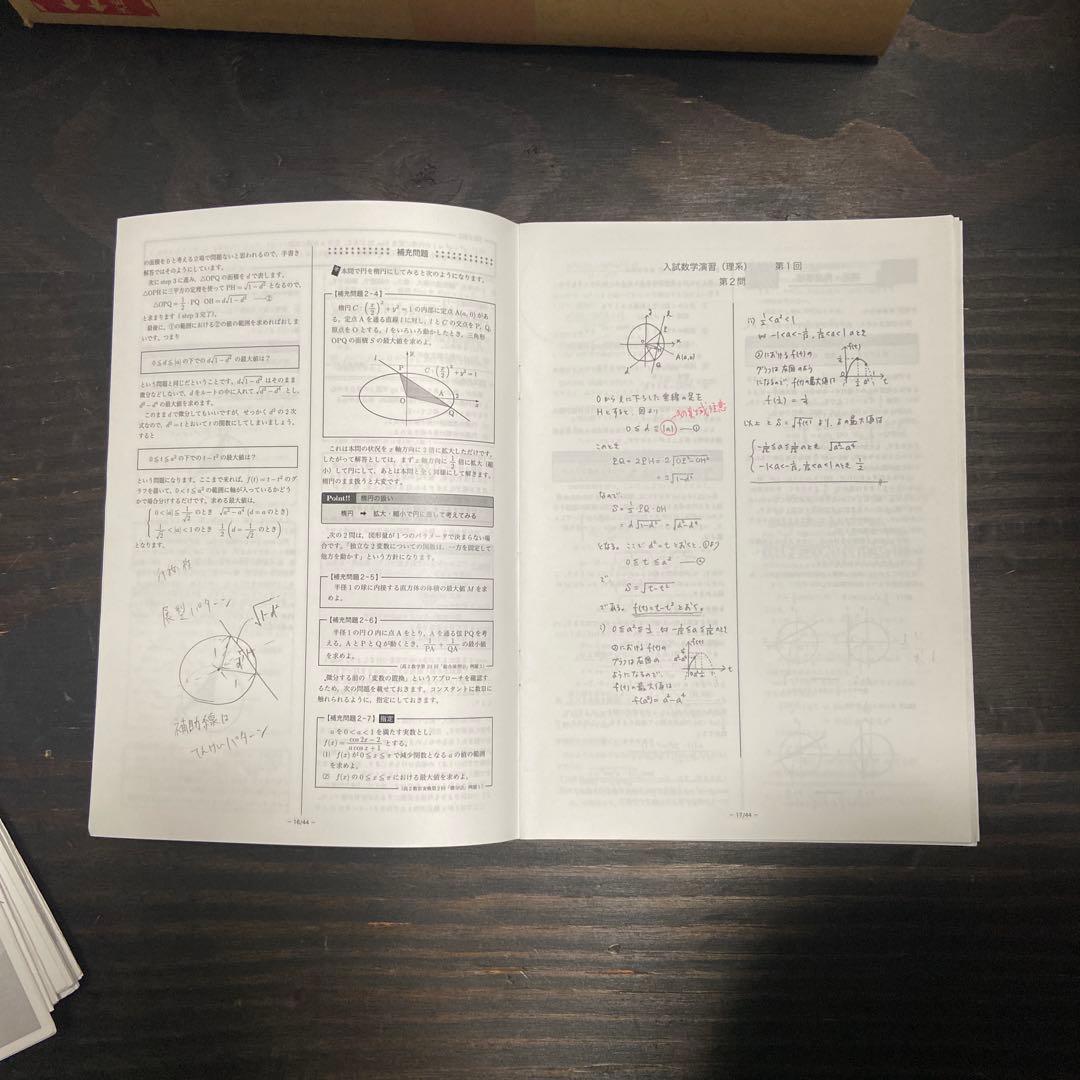 の面積を0と考える立場で問題ないと思われるので，手書き
解答ではそのようにしています。
次に step 3 に進み，△OPQ の面積を d で表します。
△OPH に三平方の定理を使って PH=√1−d² となるので，
△OPQ=1/2・PQ・OH=d√1−d² ……②
と求まります（step 3 完了）。
最後に，①の範囲における②の値の範囲を求めればおしま
いです。つまり
0≦d≦|a| の下での d√1−d² の最大値は？
という問題と同じだということです。d√1−d² はそのまま
微分などしないで，d をルートの中に入れて √d²−d⁴ とし，
d²−d⁴ の最大値を求めます。
このまま d で微分してもいいですが，せっかく d² の2次
式なので，d²=t とおいて t の関数にしてしまいましょう。
すると
0≦t≦a² の下での t−t² の最大値は？
という問題になります。ここまで来れば，f(t)=t−t² のグ
ラフを描いて，0<t≦a² の範囲に軸が入っているかどう
かで場合分けするだけです。求める最大値は，
0<|a|≦1/√2 のとき √a²−a⁴ (d=a のとき)
1/√2<|a|<1 のとき 1/2 (d=1/√2 のとき)
となります。
典型パターン
√1-d²
1
d
H
1
補助線は
パターン
− 16/44 −
補充問題
本問で円を楕円にしてみると次のようになります。
【補充問題2-4】
楕円 C：(x/2)²+y²=1 の内部に定点 A(a, 0) があ
る。定点 A を通る直線 l に対し，l と C の交点を P, Q，
原点を O とする。l をいろいろ動かしたとき，三角形
OPQ の面積 S の最大値を求めよ。
l
y
P
C：(x/2)²+y²=1
O
A
2
x
Q
これは本問の状況を x 軸方向に2倍に拡大しただけです。
したがって解答としては，まず x 軸方向に 1/2 倍に拡大（縮
小）して円にして，あとは本問と全く同様にして解きます。
楕円のまま扱うと大変です。
Point!! 楕円の扱い
楕円 ➡ 拡大・縮小で円に直して考えてみる
次の2問は，図形量が1つのパラメータで決まらない場
合です。「独立な2変数についての関数は，一方を固定して
他方を動かす」という方針になります。
【補充問題2-5】
半径1の球に内接する直方体の体積の最大値 M を求
めよ。
【補充問題2-6】
半径1の円 O 内に点 A をとり，A を通る弦 PQ を考
える。A と P と Q が動くとき，1/PA+1/QA の最小値
を求めよ。
微分する前の「変数の置換」というアプローチを確認す
るため，次の問題を載せておきます。コンスタントに数Ⅲに
触れられるように，指定にしておきます。
【補充問題2-7】指定
a を 0<a<1 を満たす実数とし，
f(x)=(cos2x−2)/(a cos x+1) とする。
(1) f(x) が 0≦x≦π で減少関数となる a の値の範囲
を求めよ。
(2) f(x) の 0≦x≦π における最大値を求めよ。
入試数学演習（理系） 第1回
第2問
y
l
x
A(a,0)
Oからlに下ろした垂線の足を
Hとすると，図より
0≦d≦|a| —①
このとき
PQ=2PH=2√OP²-OH²
=2√1-d²
なので，
S=1/2 PQ・OH
=d√1-d²=√d²-d⁴
となる。ここで d²=t とおくと，①より
0≦t≦a² —②
で
S=√t-t²
である。f(t)=t-t² とおく。
i) 0≦a²≦1/2 ⇔ -1/√2≦a≦1/√2 のとき
②における f(t)の
グラフは右図の
ようになるので，
f(t)の最大値は
f(a²)=a²-a⁴
f(t)
t
ii) 1/2<a²<1
⇔ -1<a<-1/√2, 1/√2<a<1 のとき
②における f(t)の
グラフは右図のよう
になるので，f(t)の最大値は
f(1/2)=1/4
f(t)
t
以上と S=√f(t) より，Sの最大値は
-1/√2≦a≦1/√2 のとき √a²-a⁴
-1<a<-1/√2, 1/√2<a<1 のとき 1/2
− 17/44 −